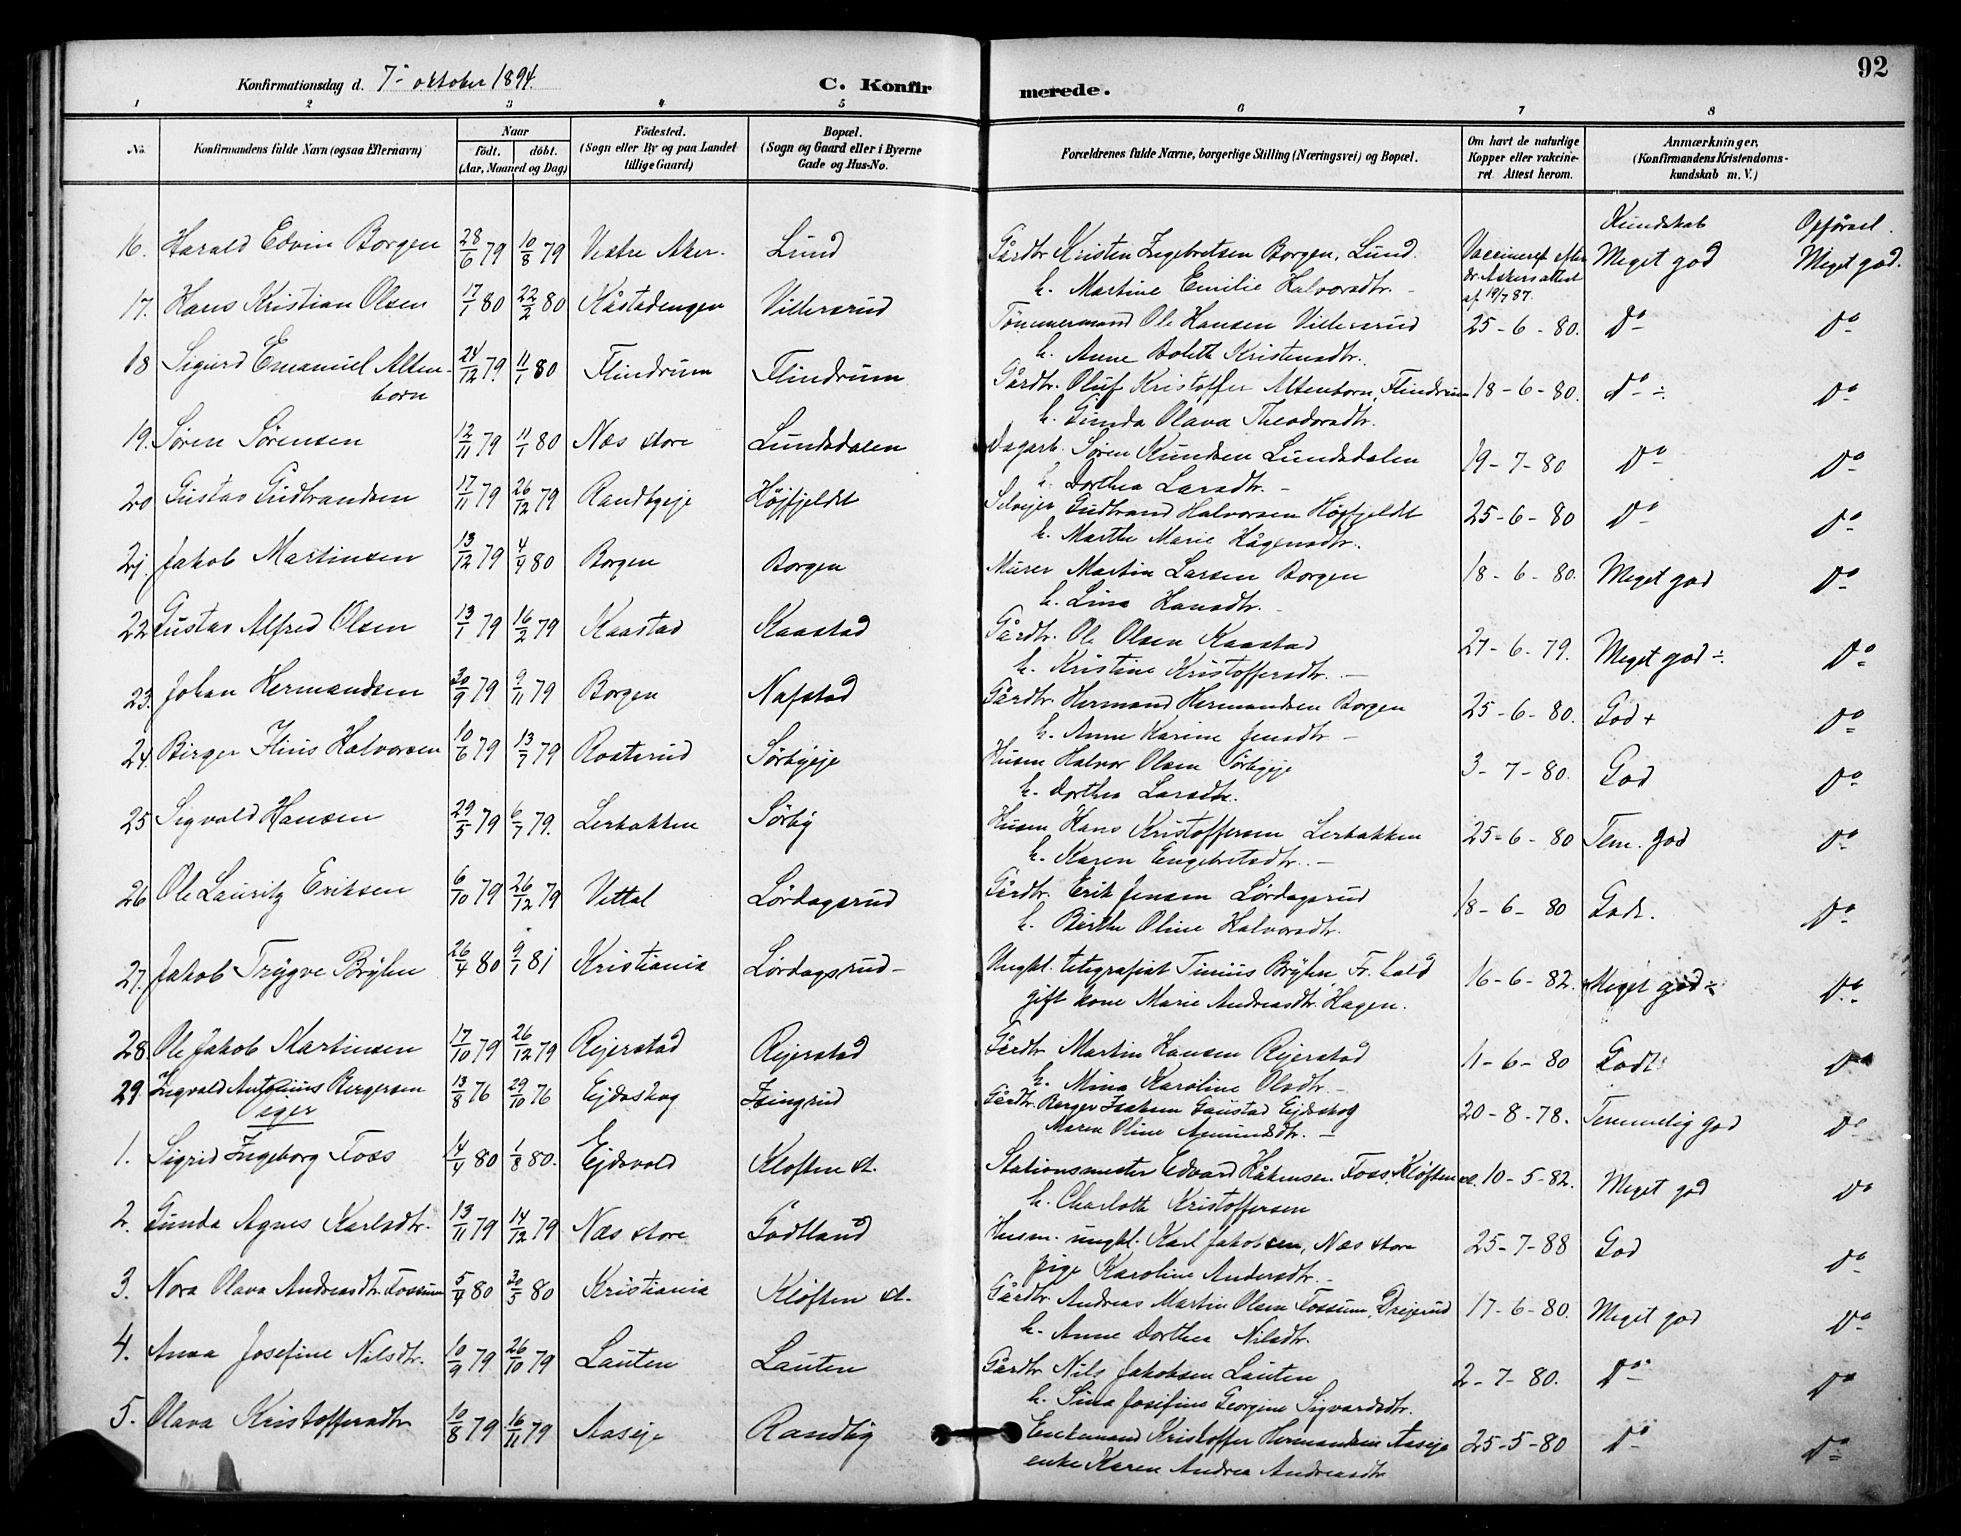 92
Konfirmationsdag d. 7de oktober 1894.
C. Konfirmerede.
1 2 3 4 5 6 7 8
No. Konfirmandens fulde Navn (ogsaa Efternavn) Naar födt. döbt. (Aar, Maaned og Dag) Födested. (Sogn eller By og paa Landet tillige Gaard) Bopæl. (Sogn og Gaard eller i Byerne Gade og Hus-No. Forældrenes fulde Navne, borgerlige Stilling (Næringsvei) og Bopæl. Om havt de naturlige Kopper eller vakcineret. Attest herom. Anmærkninger. (Konfirmandens Kristendomskundskab m. V.)
Kundskab Opførsel.
16. Harald Edvin Borgen 28/6 79 10/8 79 Vestre Aker. Lund Gårdbr. Kristen Ingebretsen Borgen, Lund. Vaccineret efter Meget god Meget god.
h. Martine Emilie Halvorsdtr. dr. Askers attest
af 19/7 87.
17. Hans Kristian Olsen 17/1 80 22/2 80 Kåstadengen Villersrud Tømmermand Ole Hansen Villersrud 25-6-80. Do Do
h. Anne Bolette Kristensdtr.
18 Sigurd Emanuel Alten- 24/12 79. 11/1 80 Flindrum Flindrum Gårdbr. Oluf Kristoffer Altenborn, Flindrum 18-6-80. Do ÷ Do
born h. Gunda Olava Theodorsdtr.
19. Søren Sørensen 12/11 79 11/1 80 Næs store Lundsdalen Dagarb. Søren Knudsen Lundsdalen 19-7-80 Do Do
h. Dorthea Larsdtr.
20 Gustav Gudbrandsen 17/11 79 26/12 79 Randbyeje Højfjeldet Selvejer Gudbrand Halvorsen Højfjeldet 25-6-80 Do Do
h. Marthe Marie Hågensdtr.
21. Jakob Martinsen 13/12 79 4/4 80 Borgen Borgen Murer Martin Larsen Borgen 18-6-80. Meget god Do
h. Lina Hansdtr.
22 Gustav Alfred Olsen 13/1 79 16/2 79 Kaastad Kaastad Gårdbr. Ole Olsen Kaastad 27-6-79. Meget god ÷. Do
h. Kristine Kristoffersdtr.
23. Johan Hermandsen 30/9 79 9/11 79 Borgen Nafstad Gårdbr. Hermand Hermandsen Borgen 25-6-80. God + Do
h. Anne Karine Jensdtr.
24. Birger Flius Halvorsen 10/6 79 13/7 79 Rosterud Sørbyeje Husm. Halvor Olsen Sørbyeje 3-7-80. God Do
h. Dorthea Larsdtr.
25 Sigvald Hansen 29/5 79 6/7 79. Lerbakken Sørby Husm. Hans Kristoffersen Lerbakken 25-6-80 Tem. god Do
h. Karen Engebretsdtr.
26 Ole Lauritz Eriksen 6/10 79 26/12 79 Vittal Lørdagsrud Gårdbr. Erik Jensen Lørdagsrud 18-6-80 Godt. Do
h. Birthe Oline Halvorsdtr.
27. Jakob Trygve Brÿhn 26/4 80 9/1 81 Kristiania Lørdagsrud Ungkl. telegrafist Tinius Brÿhn, Fr. hald 16-6-82. Meget god ÷ Do
gift kone Marie Andreasdtr. Hagen.
28. Ole Jakob Martinsen 17/10 79 26/12 79 Rejerstad Rejerstad Gårdbr Martin Hansen Rejerstad 11-6-80 Godt Do
h. Mina Karoline Olsdtr.
29. Ingvald Antonius Bergersen 13/8 76 29/10 76 Ejdskog Isingrud Gårdbr. Berger Isaksen Gaustad Ejdskog 20-8-78. Temmelig god Do
Maren Oline Amundsdtr.
Piger
1. Sigrid Ingeborg Foss 14/4 80 1/8 80. Ejdsvold Kløften st. Stationsmester Edvard Håkensen Foss, Kløften st. 10-5-82. Meget god Do
h. Charlotte Kristoffersen
2. Gunda Agnes Karlsdtr. 13/11 79 14/12 79 Næs store Godtland Husm. ungkl. Karl Jakobsen, Næs store 25-7-88 God Do
pige Karoline Andersdtr.
3. Nora Olava Andreasdtr. Fossum 5/4 80 30/5 80 Kristiania Kløften st. Gårdbr. Andreas Martin Olsen Fossum, Drejerud 17-6-80. Meget god Do
h. Anne Dorthea Nilsdtr.
4. Anna Josefine Nilsdtr. 10/9 79 26/10 79 Lauten Lauten Gårdbr Nils Jakobsen Lauten 2-7-80. Do Do
h. Sina Josefine Georgine Sigvardsdtr.
5. Olava Kristoffersdtr 10/8 79 16/11 79 Aaseje Randby Enkemand Kristoffer Hermandsen Aaseje 25-5-80 Do Do
enke Karen Andrea Andreasdtr